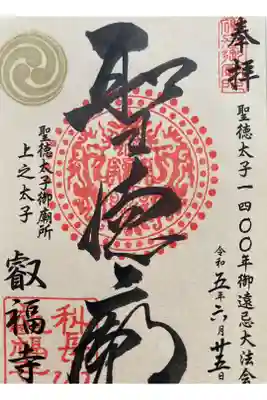 奉拝
聖徳太子一四〇〇年御遠忌大法会
令和五年六月廿五日
聖徳廟
聖徳太子御廟所
上之太子
叡福寺